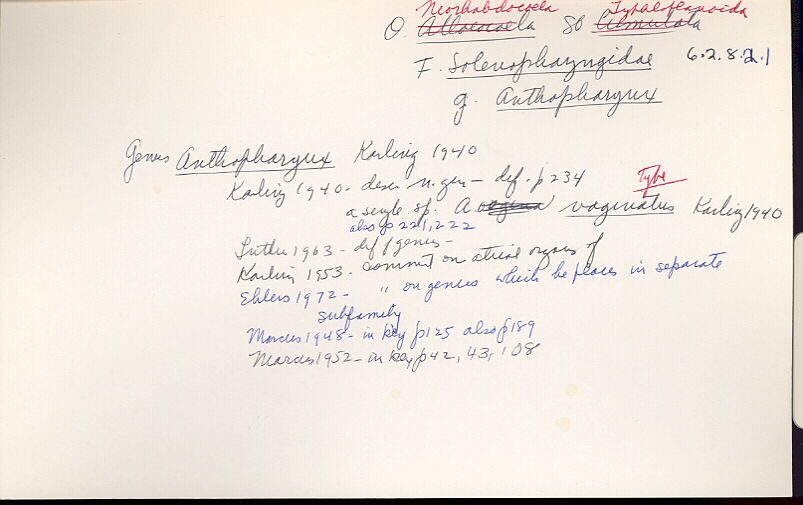 Neorhabdocoela Typhloplanoida
O. Alloeocoela SO Cumulata
F. Solenopharyngidae 6.2.8.2.1
g. Anthopharynx
Genus Anthopharynx Karling 1940
Karling 1940. descr n. gen – def. p 234 Type
a single sp. A vaginatus Karling 1940
also p 221, 222
Luther 1963 – def / genus –
Karling 1953. comment on atrial organs of
Ehlers 1972 – " on genus which he places in separate
subfamily
Marcus 1948 – in key p125 also p189
Marcus 1952 – in key p42, 43, 108